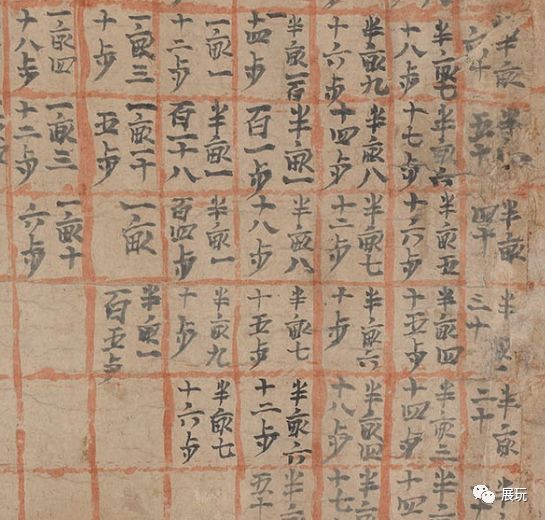 半畝
六十
半畝七
十八步
半畝九
十六步
半畝一百
一十四步
一畝一
十二步
一畝三
十步
一畝四
十八步
五十
半畝六
十七步
半畝八
十四步
半畝一
百一步
半畝一
百一十八
一畝一十
五步
一畝三
十二步
半畝
四十
半畝五
十六步
半畝七
十二步
半畝八
十八步
半畝一
百四步
一畝
一畝十
六步
半
三十
半畝四
十五步
半畝六
十步
半畝七
十五步
半畝九
十步
半畝一
百五步
半畝
二十
半畝三
十四步
半畝四
十八步
半畝六
十二步
半畝七
十六步
半
半畝二
十四
半畝
十
半畝
五十
展玩